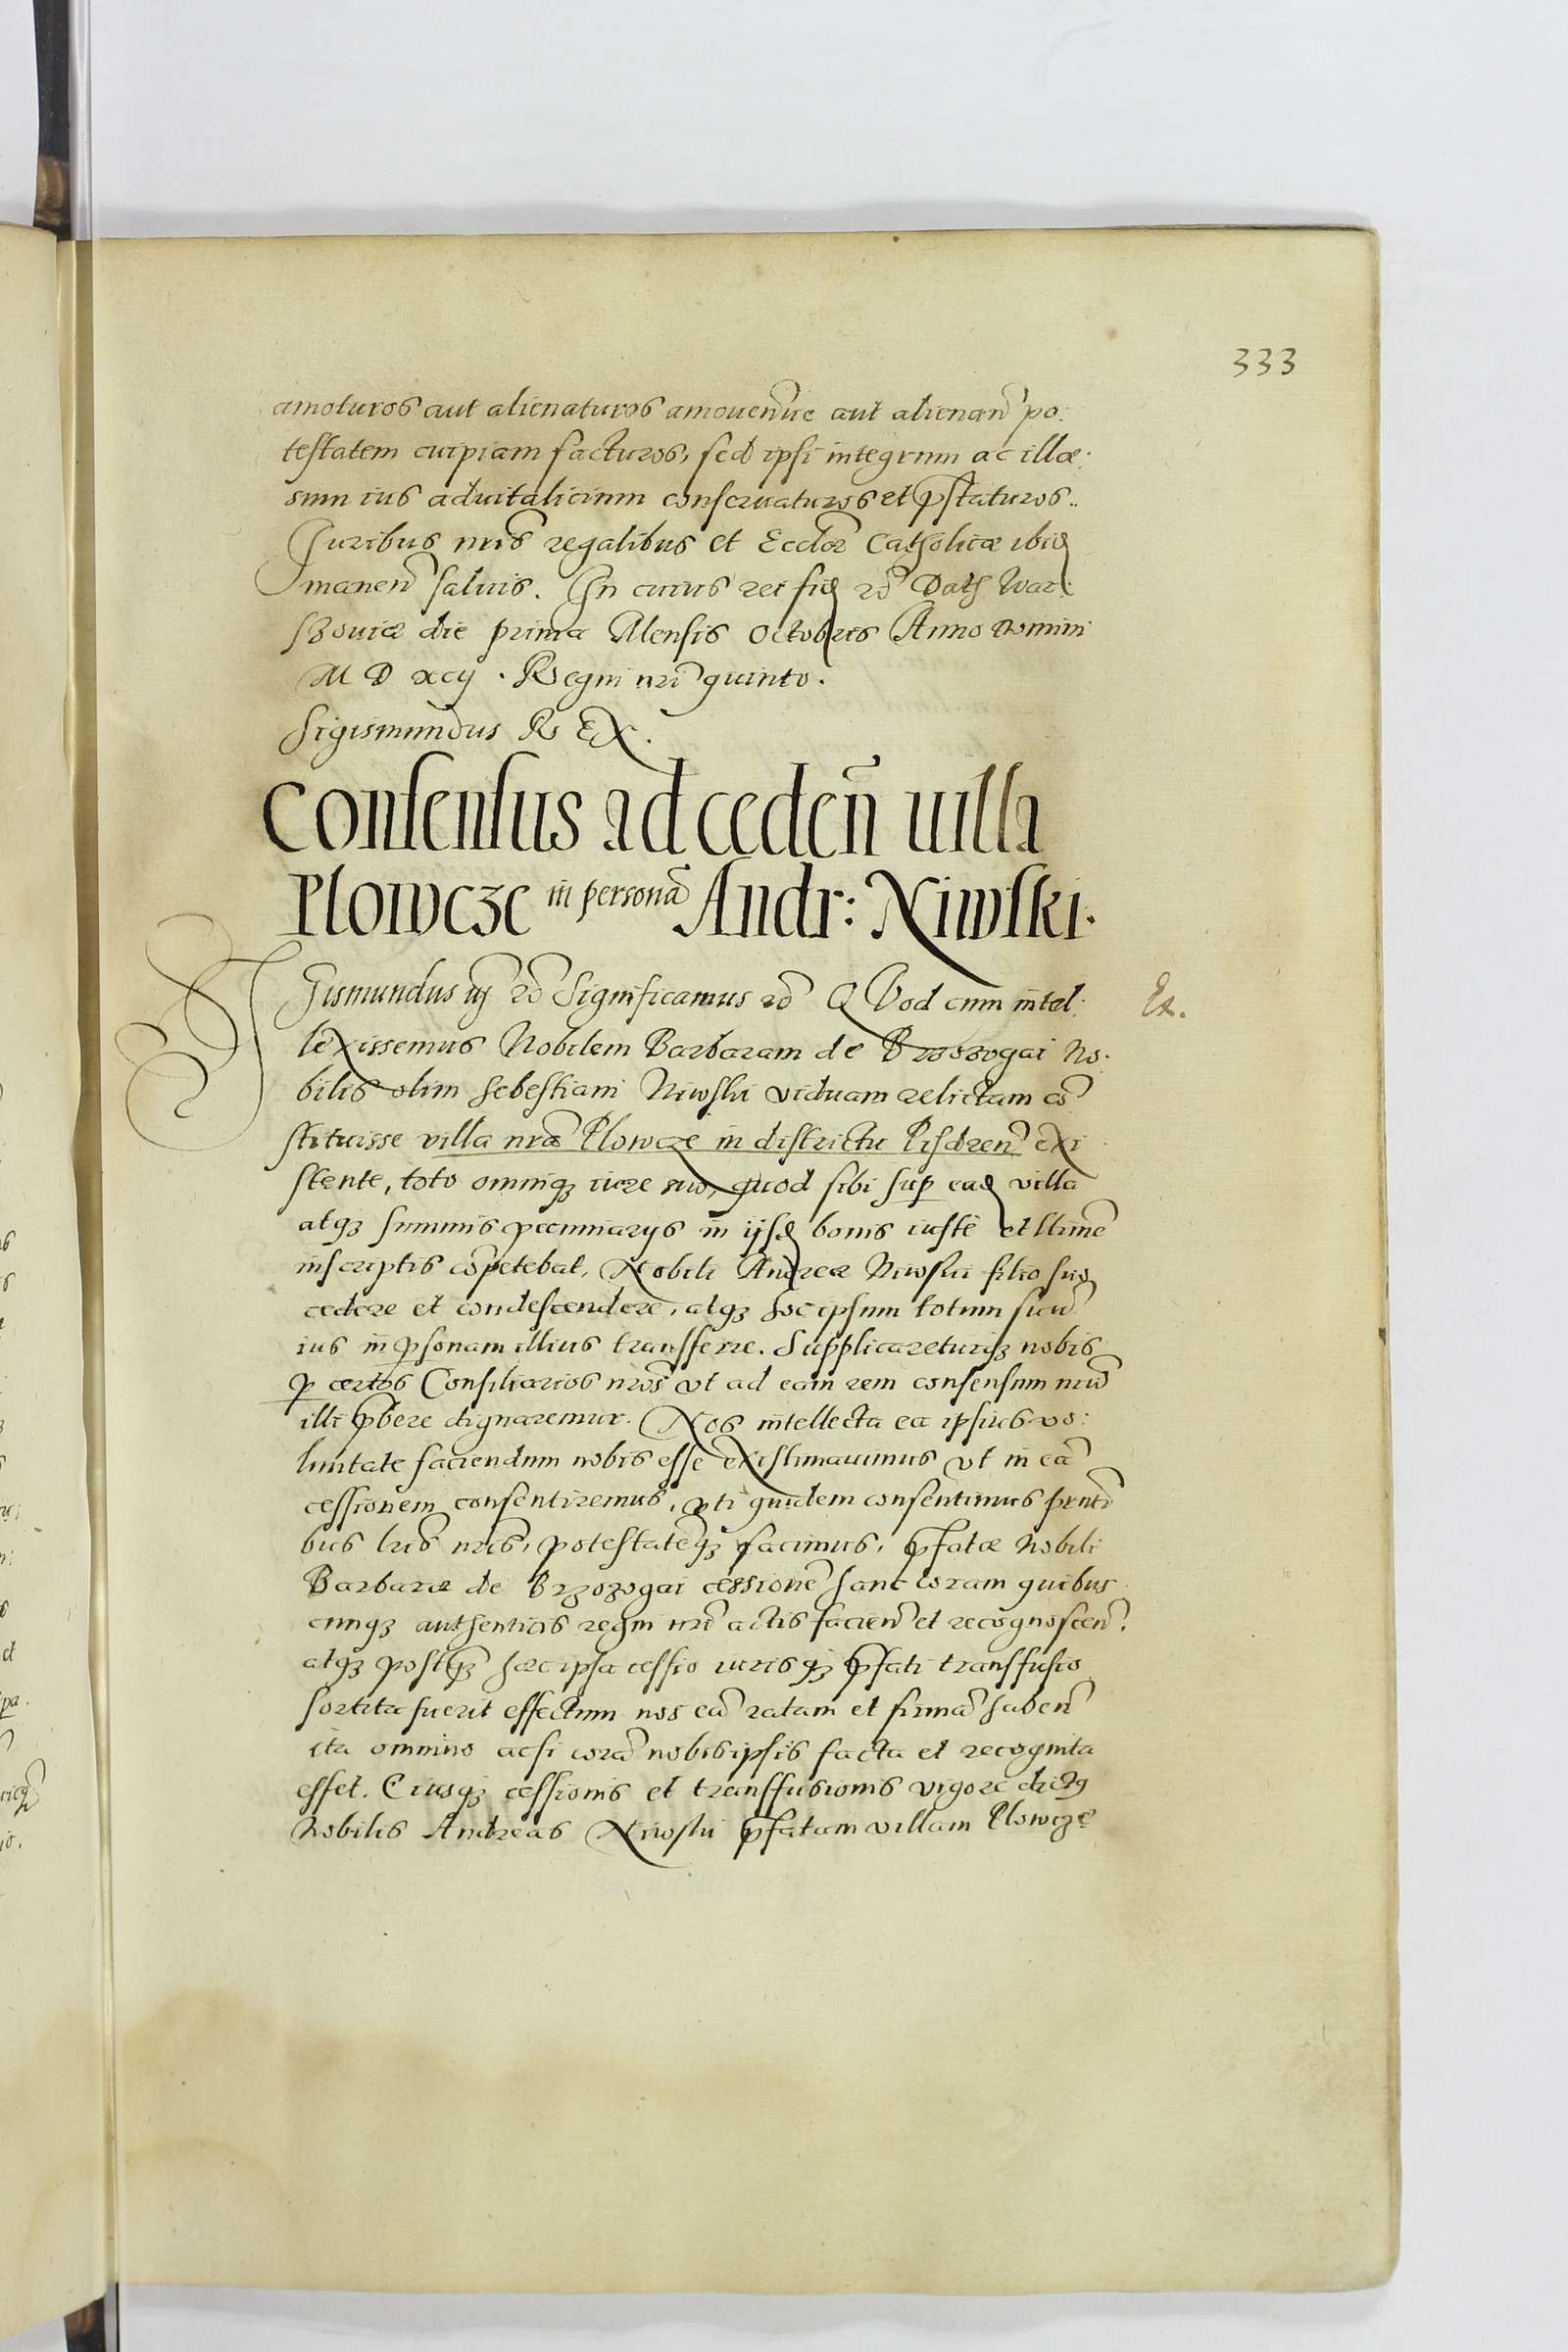 333
amoturos aut alienaturos amouen̄ue aut alienan̄ po:
testatem cuipiam facturos, sed ipsi integrum ac illæ:
sum ius aduitalicium conseruaturos et p̄staturos..
Iuribus nr̄is regalibus et Eccl̄iæ Catholicæ ibid
manen̄ saluis. In cuius rei fid etc̄ Datȝ War:
szouiæ die prima Mensis Octobris Anno Domini
M D xcij. Regni nr̄i quinto.
Sigismundus R EX.
Consensus ad ceden̄ uilla
Plowcze in personā Andr: Niwski.
SIgismundus iij etc̄ Significamus etc̄ QVod cum intel:
Ex.
lexissemus Nobilem Barbaram de Brzozogai No:
bilis olim Sebestiani Niwski viduam relictam cō
stituisse villa nr̄a Plowcze in districtu Pisdren̄ exi
stente, toto omniqȝ iure suo, quod sibi sup ead villa
atqȝ summis pecuniarijs in ijsd bonis iuste et l̄time
inscriptis cōpetebat, Nobili Andreæ Niwski filio suo
cedere et condescendere, atqȝ hoc ipsum totum suū
ius in p̱sonam illius transferre. Supplicareturqȝ nobis
p̱ certos Consiliarios nr̄os vt ad eam rem consensum nr̄ū
illi p̄bere dignaremur. Nos intellecta ea ipsius vo:
luntate faciendum nobis esse existimauimus vt in eā
cessionem consentiremus, vti quidem consentimus p̄nti
bus lr̄is nr̄is, potestatēqȝ facimus, p̄fatæ Nobili
Barbaræ de Brzozogai cessionē hanc coram quibus
cunqȝ authenticis regni nr̄i actis facien̄ et recognoscen̄.
atqȝ postqȝ hæc ipsa cessio iurisqȝ p̄fati transfusio
sortita fuerit effectum nos eā ratam et firmā haben̄
ita omnino acsi corā nobis ipsis facta et recognita
esset. Eiusqȝ cessionis et transfusionis vigore dictꝯ
Nobilis Andreas Niwski p̄fatam villam Plowcze